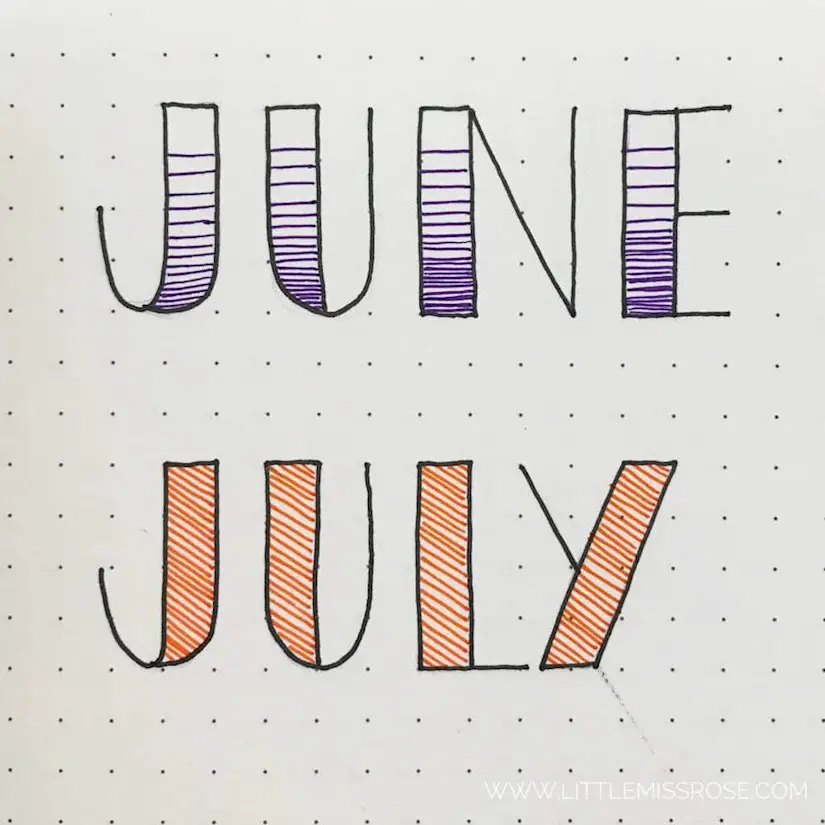 JUNE
JULY
WWW.LITTLEMISSROSE.COM